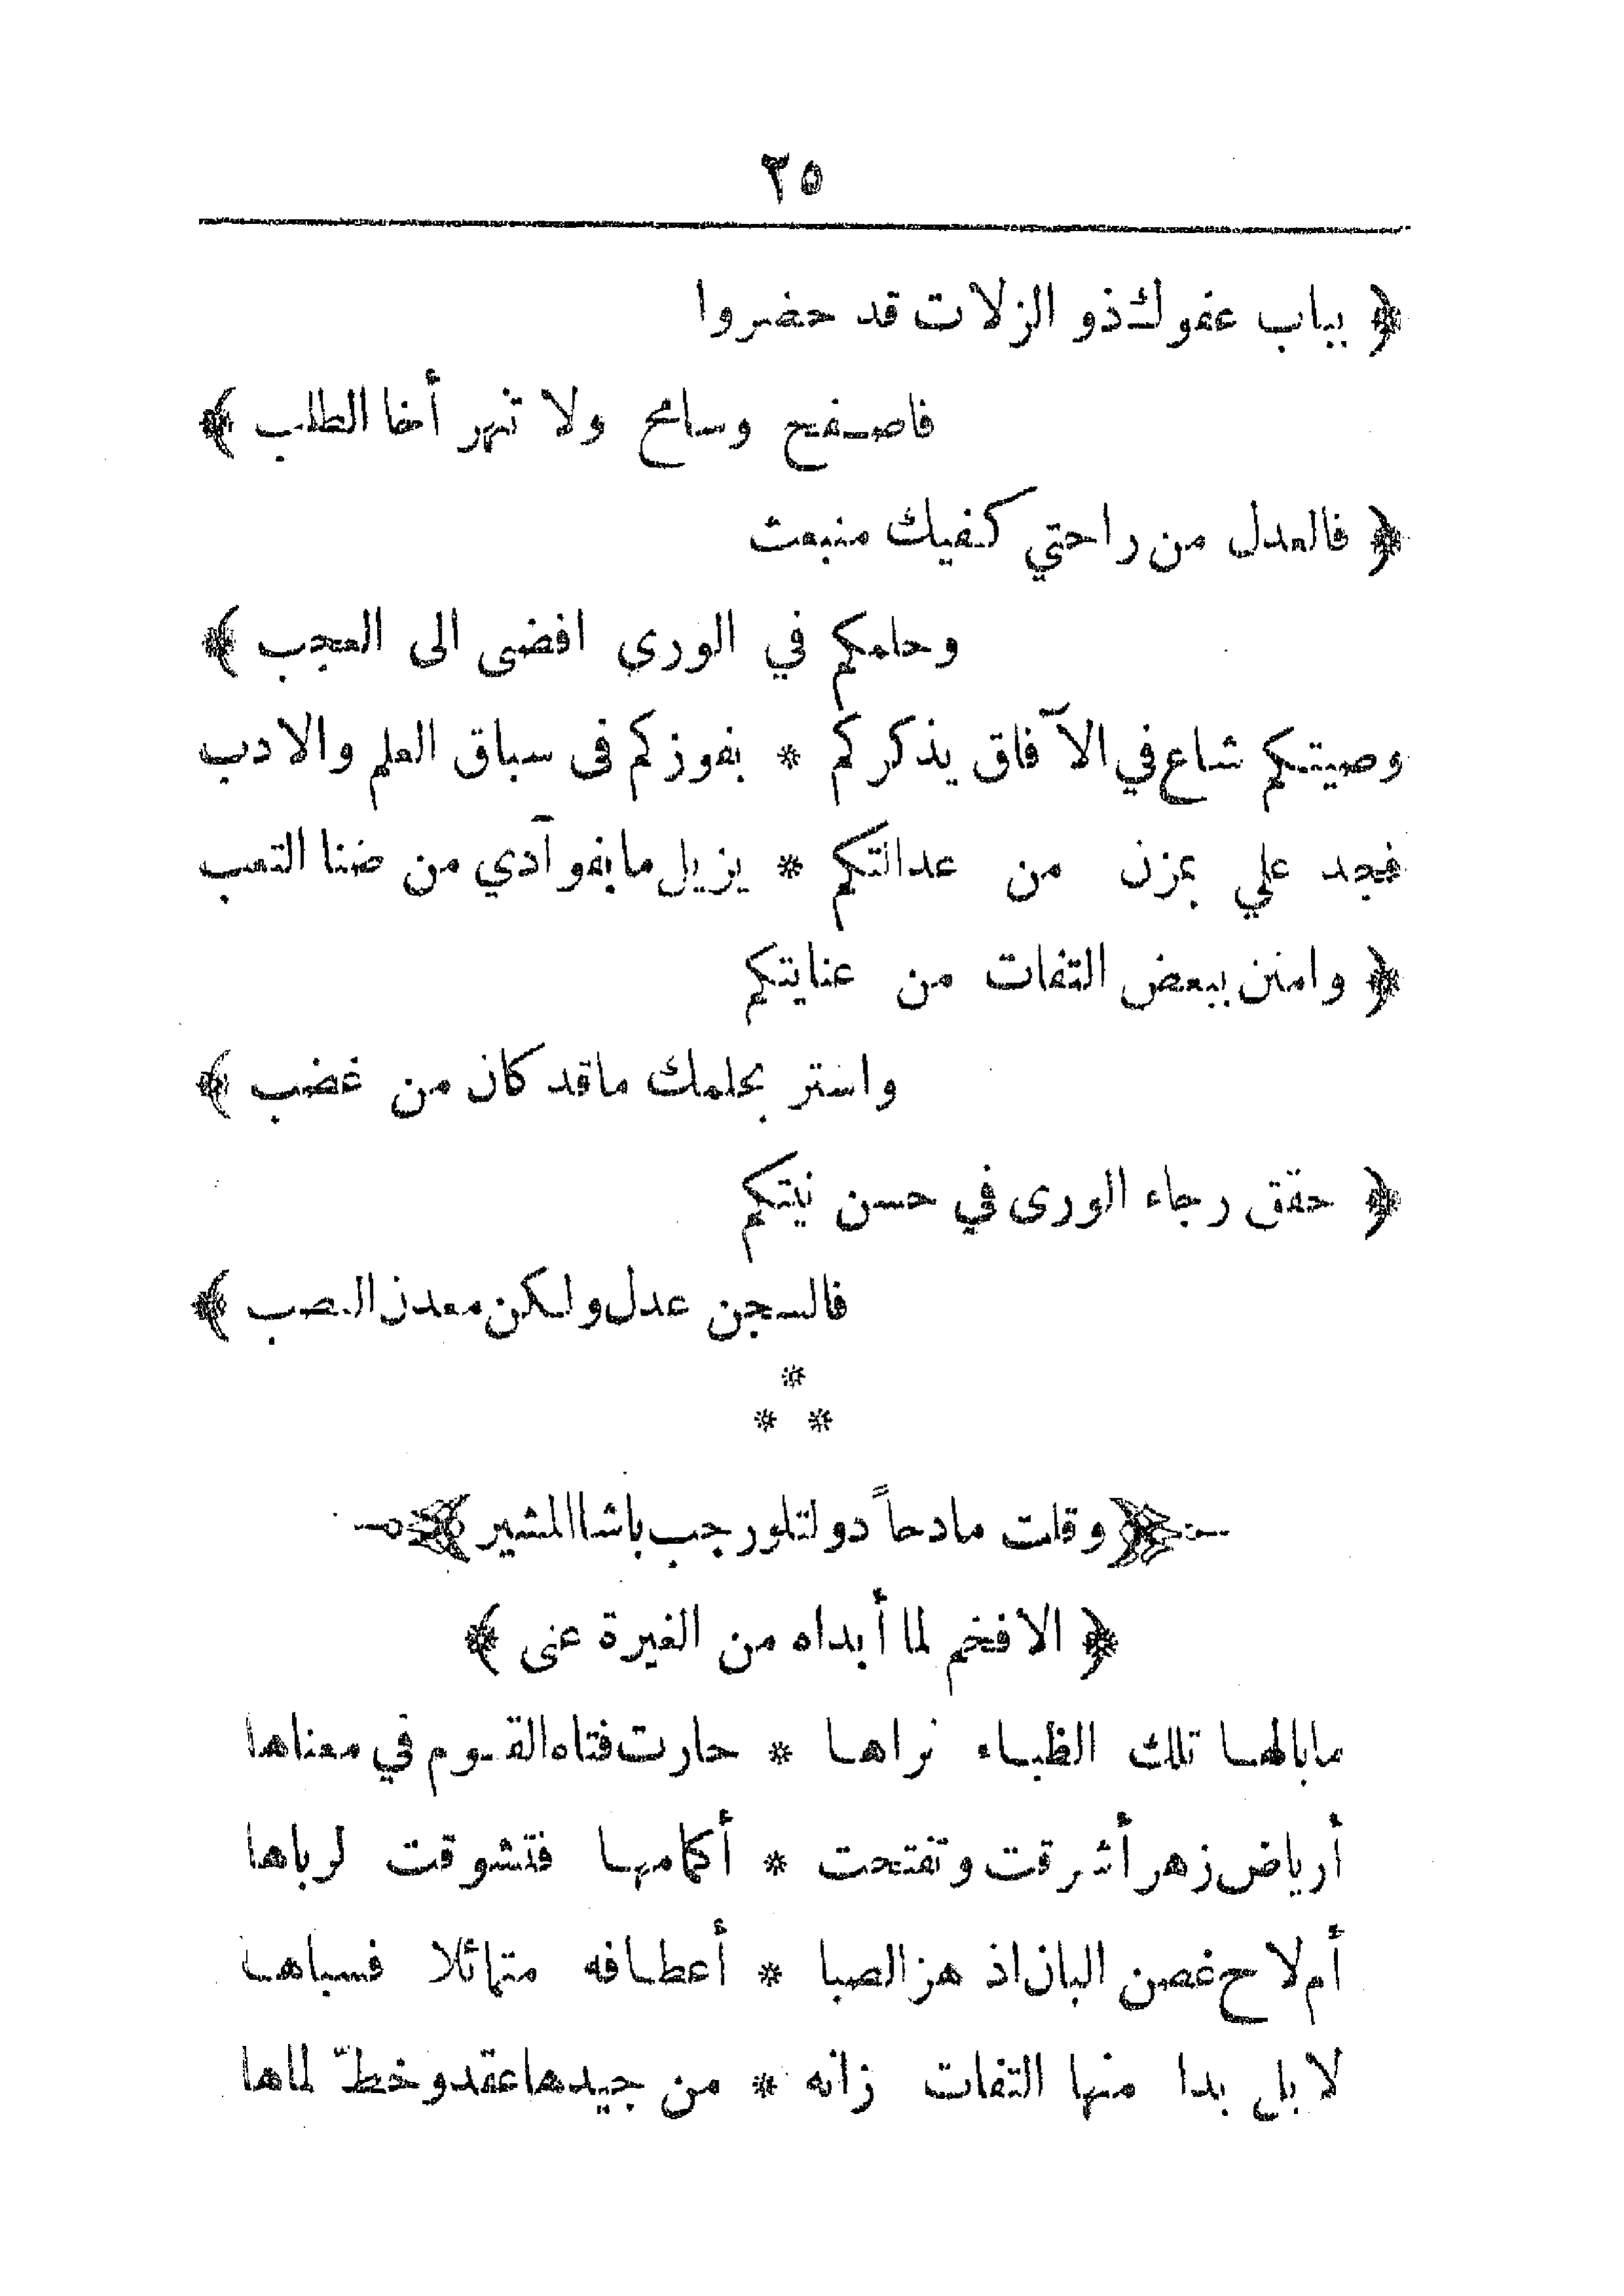 ٢٥
﴿ بباب عفوك ذو الزلات قد حضروا
فاصفح وسامح ولا تنهر أخا الطلب ﴾
﴿ فالعدل من راحتي كفيك منبعث
وحلمكم في الورى افضى الى العجب ﴾
وصيتكم شاع في الآفاق يذكركم * بفوزكم فى سباق العلم والادب
فجد علي بمزن من عدالتكم * يزيل ما بفوآدي من ضنا التعب
﴿ وامنن ببعض التفات من عنايتكم
واستر بحلمك ما قد كان من غضب ﴾
﴿ حقق رجاء الورى في حسن نيتكم
فالسجن عدل ولكن معدن النصب ﴾
*
* *
﴿ وقلت مادحاً دولتلو رجب باشا المشير ﴾
﴿ الافخم لما أبداه من الغيرة عنى ﴾
ما بالها تلك الظباء نراها * حارت فتاه القوم في معناها
أرياض زهر أشرقت وتفتحت * أكمامها فتشوقت لرباها
أم لاح غصن البان اذ هز الصبا * أعطافه متمائلا فسباها
لا بل بدا منها التفات زانه * من جيدها عقد وخطّ لماها